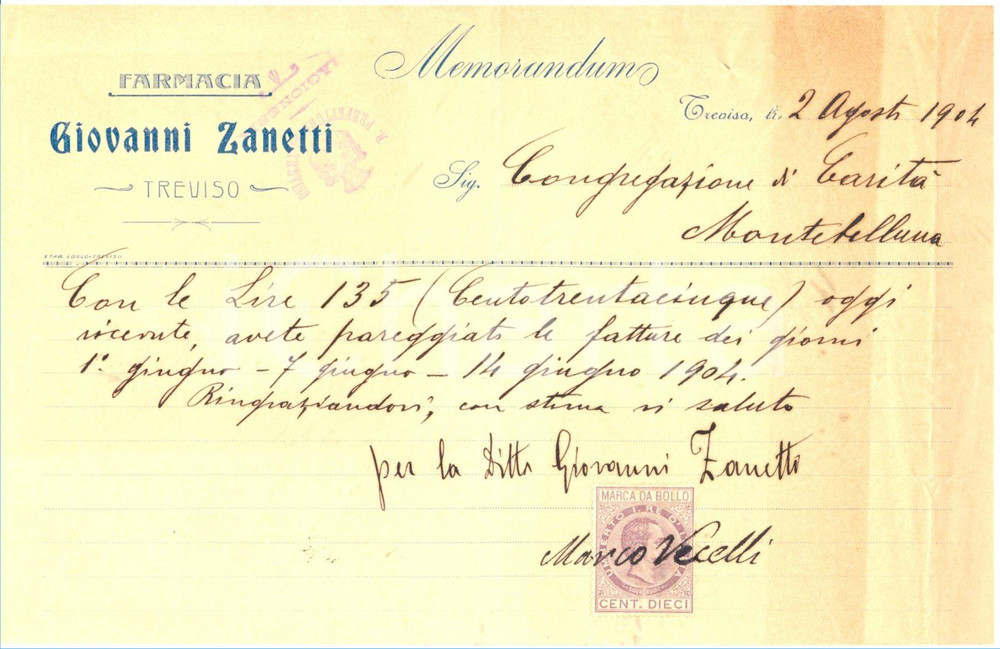 Memorandum
FARMACIA
Giovanni Zanetti
TREVISO
Treviso, li 2 Agosto 1904
Sig. Congregazione di Carità
Montebelluna
STAB. LONGO-TREVISO
Con le Lire 135 (Centotrentacinque) oggi
ricevute, avete pareggiate le fatture dei giorni
1º giugno - 7 giugno - 14 giugno 1904.
Ringraziandovi, con stima vi saluto
per la Ditta Giovanni Zanetti
MARCA DA BOLLO
UMBERTO I. RE D'ITALIA
Marco Vecelli
CENT. DIECI